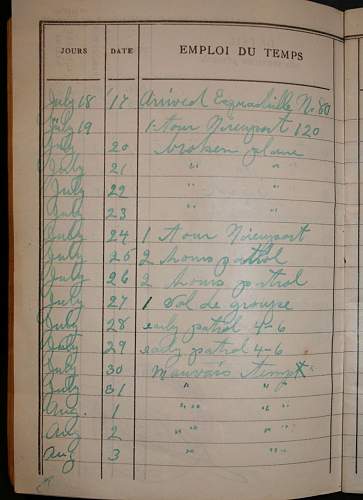 JOURS DATE EMPLOI DU TEMPS
July 18 '17 Arrived Escadrille No 80
July 19 1 tour Nieuport 120
July 20 broken plane
July 21 " "
July 22 " "
July 23 " "
July 24 1 tour Nieuport
July 25 2 hours patrol
July 26 2 hours patrol
July 27 1 Vol de groupe
July 28 early patrol 4-6
July 29 early patrol 4-6
July 30 Mauvais temps
July 31 " "
Aug. 1 " " " "
Aug 2 " " " "
Aug 3 " "